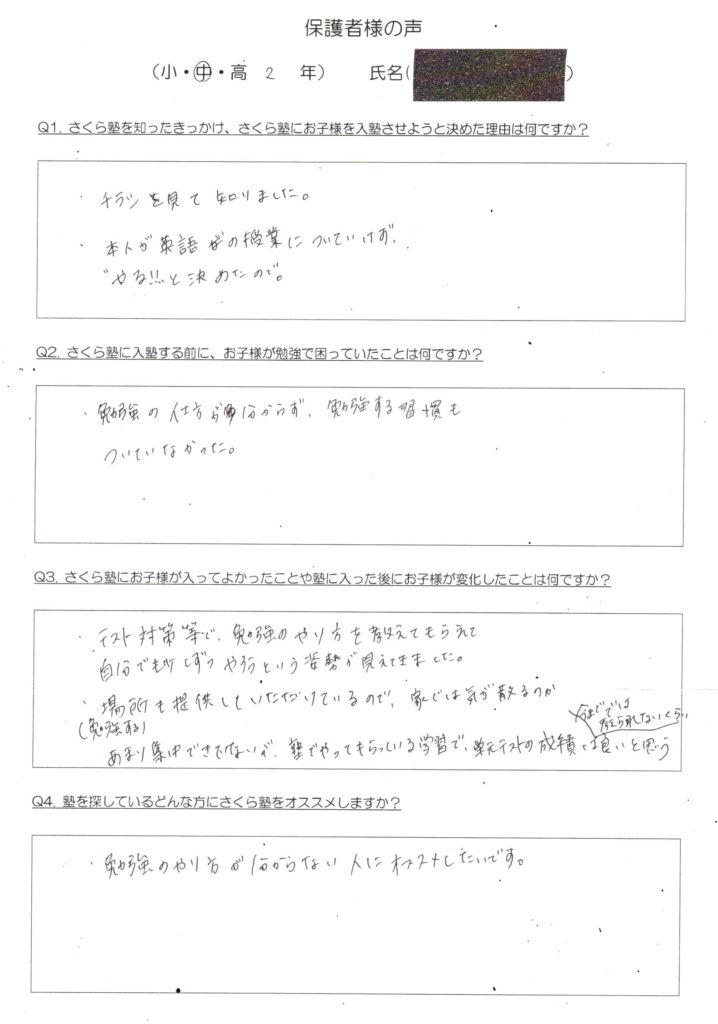 保護者様の声
(小・中・高 2 年) 氏名( )
Q1. さくら塾を知ったきっかけ、さくら塾にお子様を入塾させようと決めた理由は何ですか？
・チラシを見て知りました。
・本人が英語の授業についていけず、
"やる!!"と決めたので。
Q2. さくら塾に入塾する前に、お子様が勉強で困っていたことは何ですか？
・勉強の仕方が分からず、勉強する習慣も
ついていなかった。
Q3. さくら塾にお子様が入ってよかったことや塾に入った後にお子様が変化したことは何ですか？
・テスト対策等で、勉強のやり方を教えてもらえて
自分でも少しずつやろうという姿勢が見えてきました。
・場所も提供していただけているので、家では気が散るのか
(勉強する)
あまり集中できてないが、塾でやってもらっている学習で、単元テストの成績は良いと思う
今まででは
考えられないくらい
Q4. 塾を探しているどんな方にさくら塾をオススメしますか？
・勉強のやり方が分からない人にオススメしたいです。